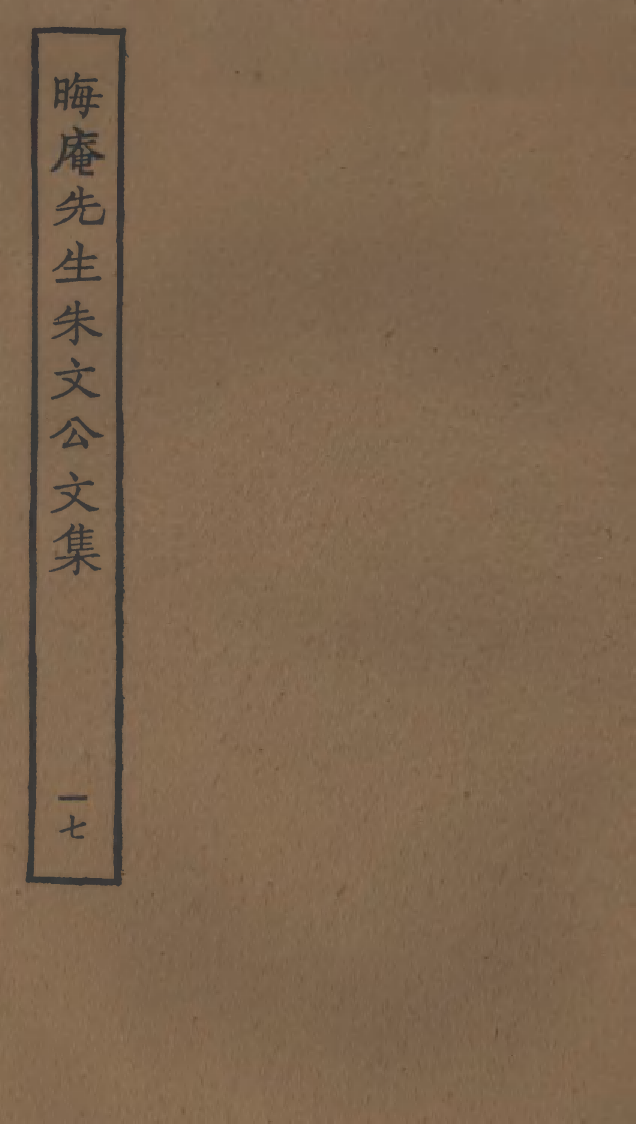 晦庵先生朱文公文集
一七